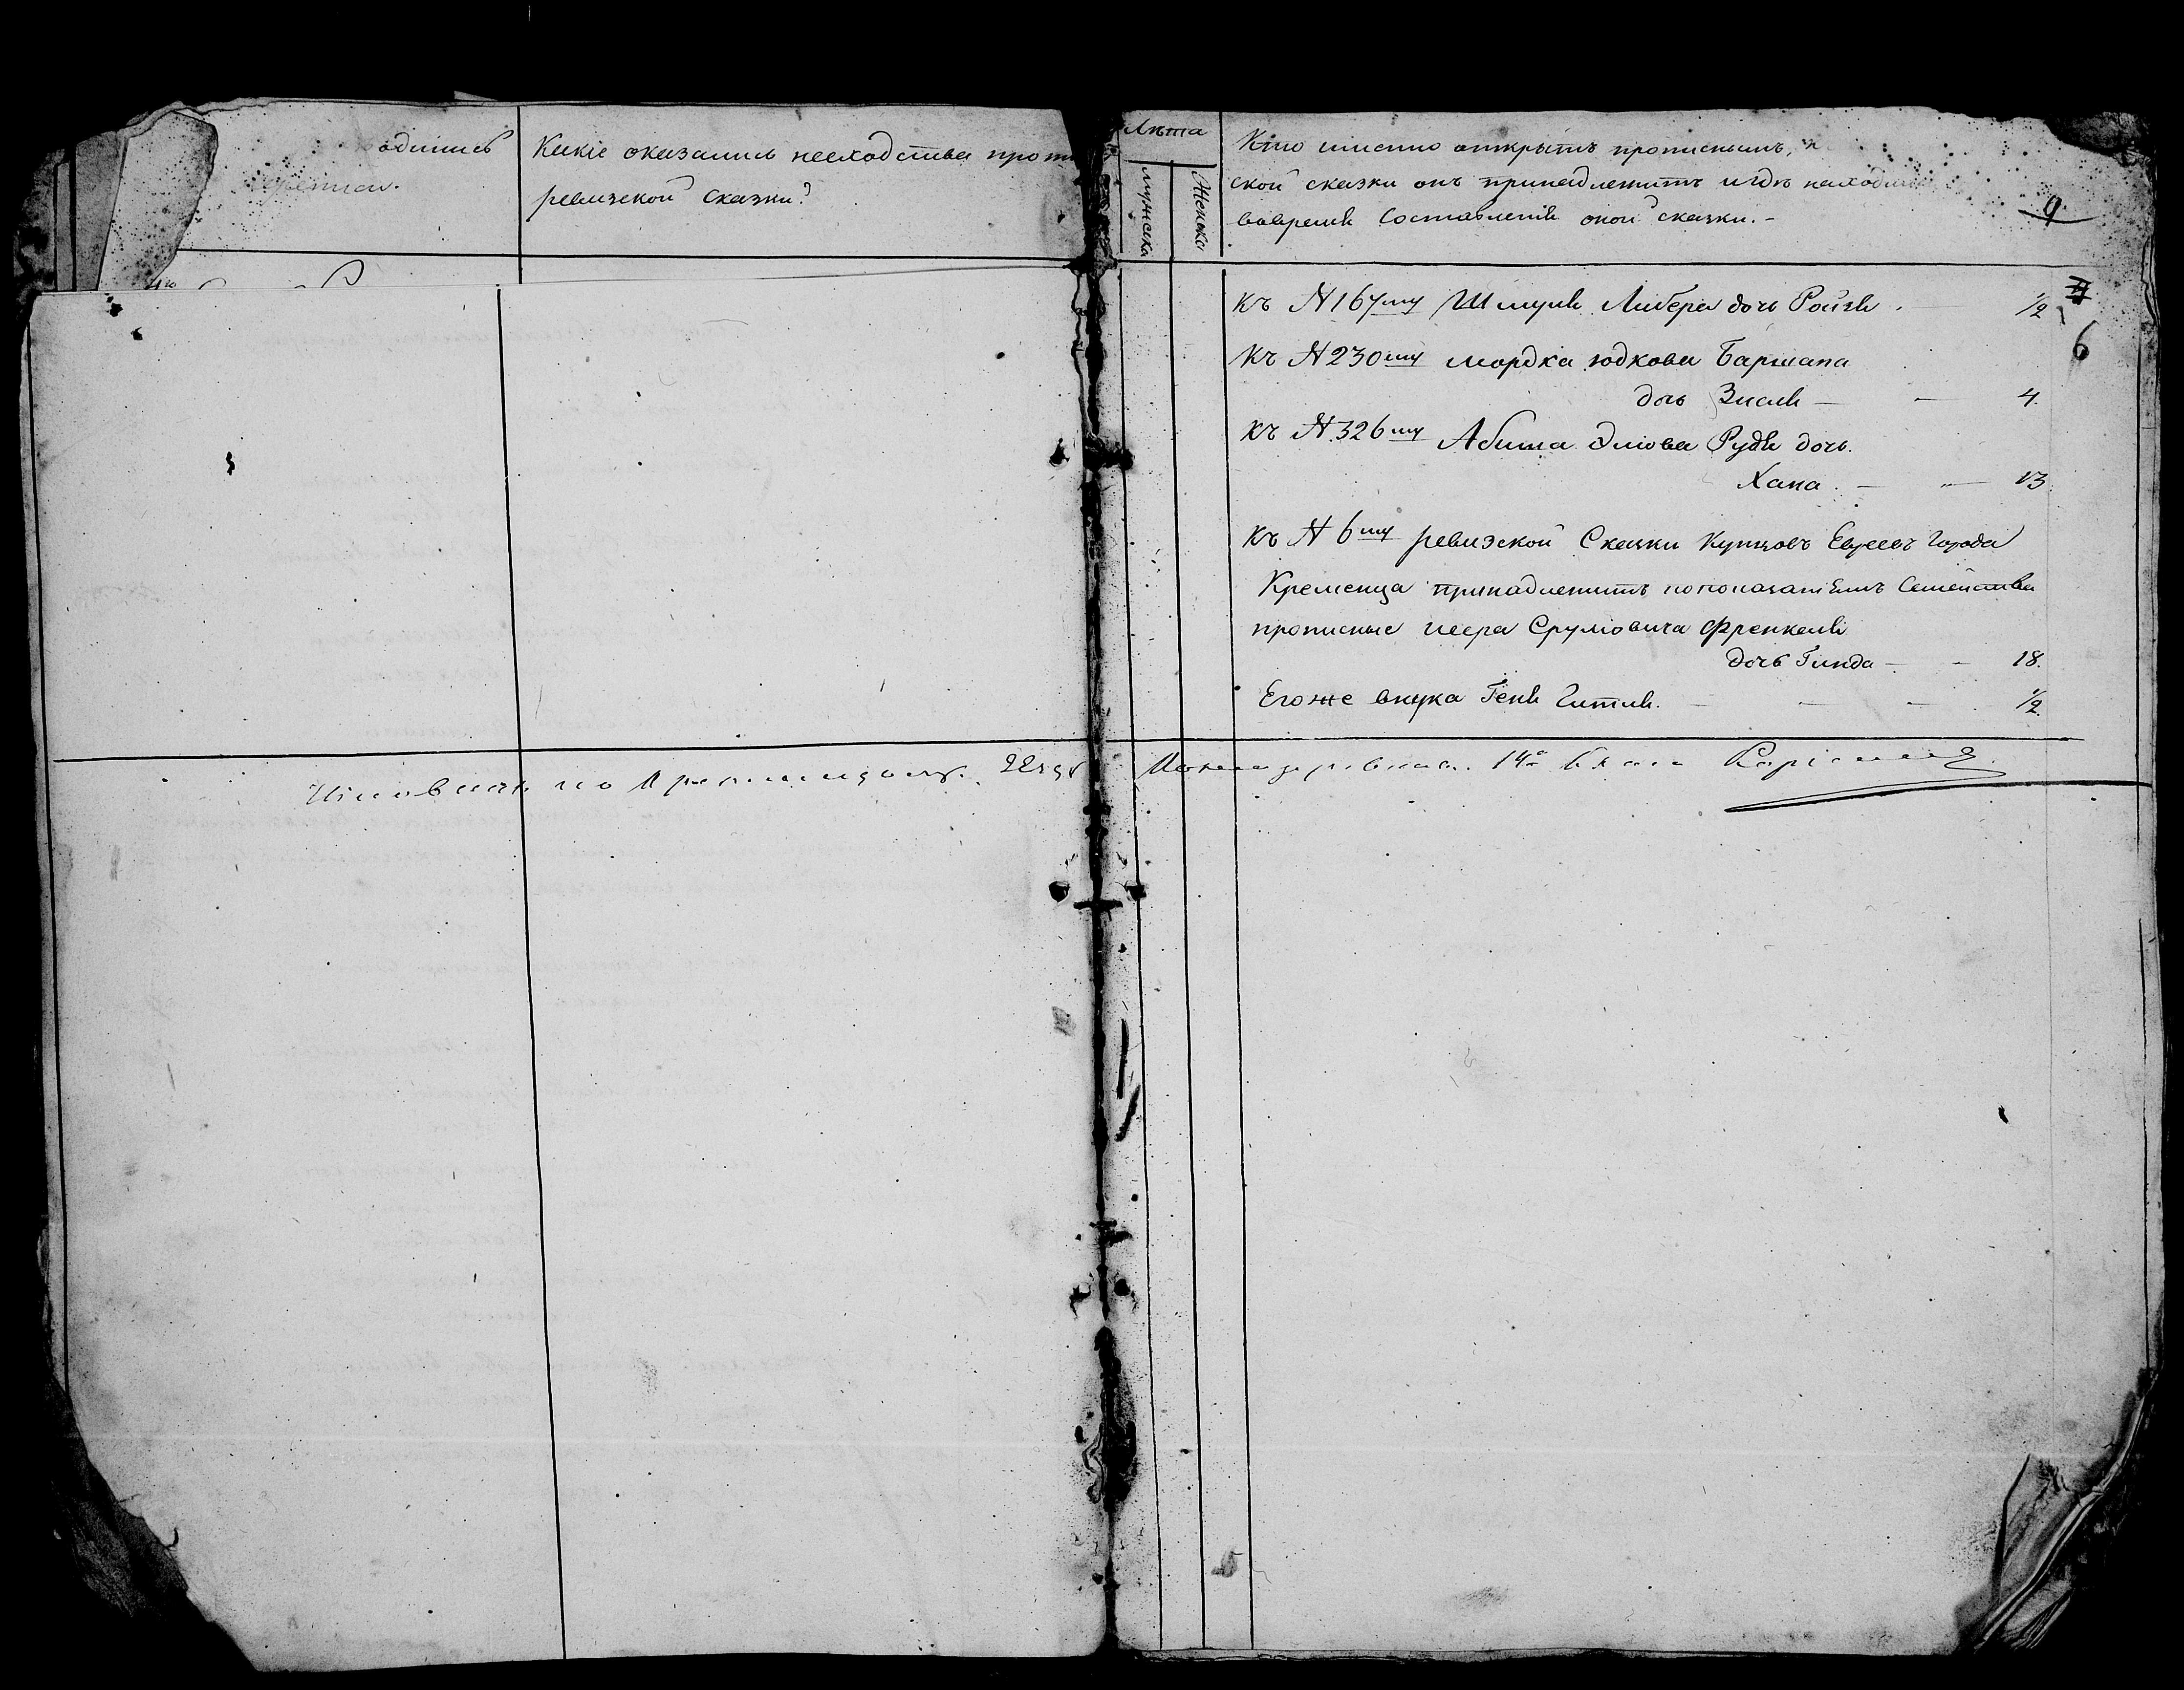 одились
Какіе оказались несходства проти
ревизской сказки?
Лѣта
мужска
Женска
Кто именно открытъ прописнымъ, к
ской сказки онъ принадлежитъ и гдѣ находил
вовремя составленія оной сказки. -
9
6
Къ № 167му Шмуля Либера дочь Ройзя 1/2
Къ № 230му мордка юдкова Бармана
дочь Зисля — — 4.
Къ № 326му Абиша Эліова Рудя дочь.
Хана. — — 13
Къ № 6му ревизской Сказки Купцовъ Евреевъ города
Кременца принадлежитъ по показаніямъ Семейства
прописные иесра Срулиовича Френкеля
дочь Гинда — — 18.
Егоже внука Геня Гитля. — — — 1/2.
14го Класса